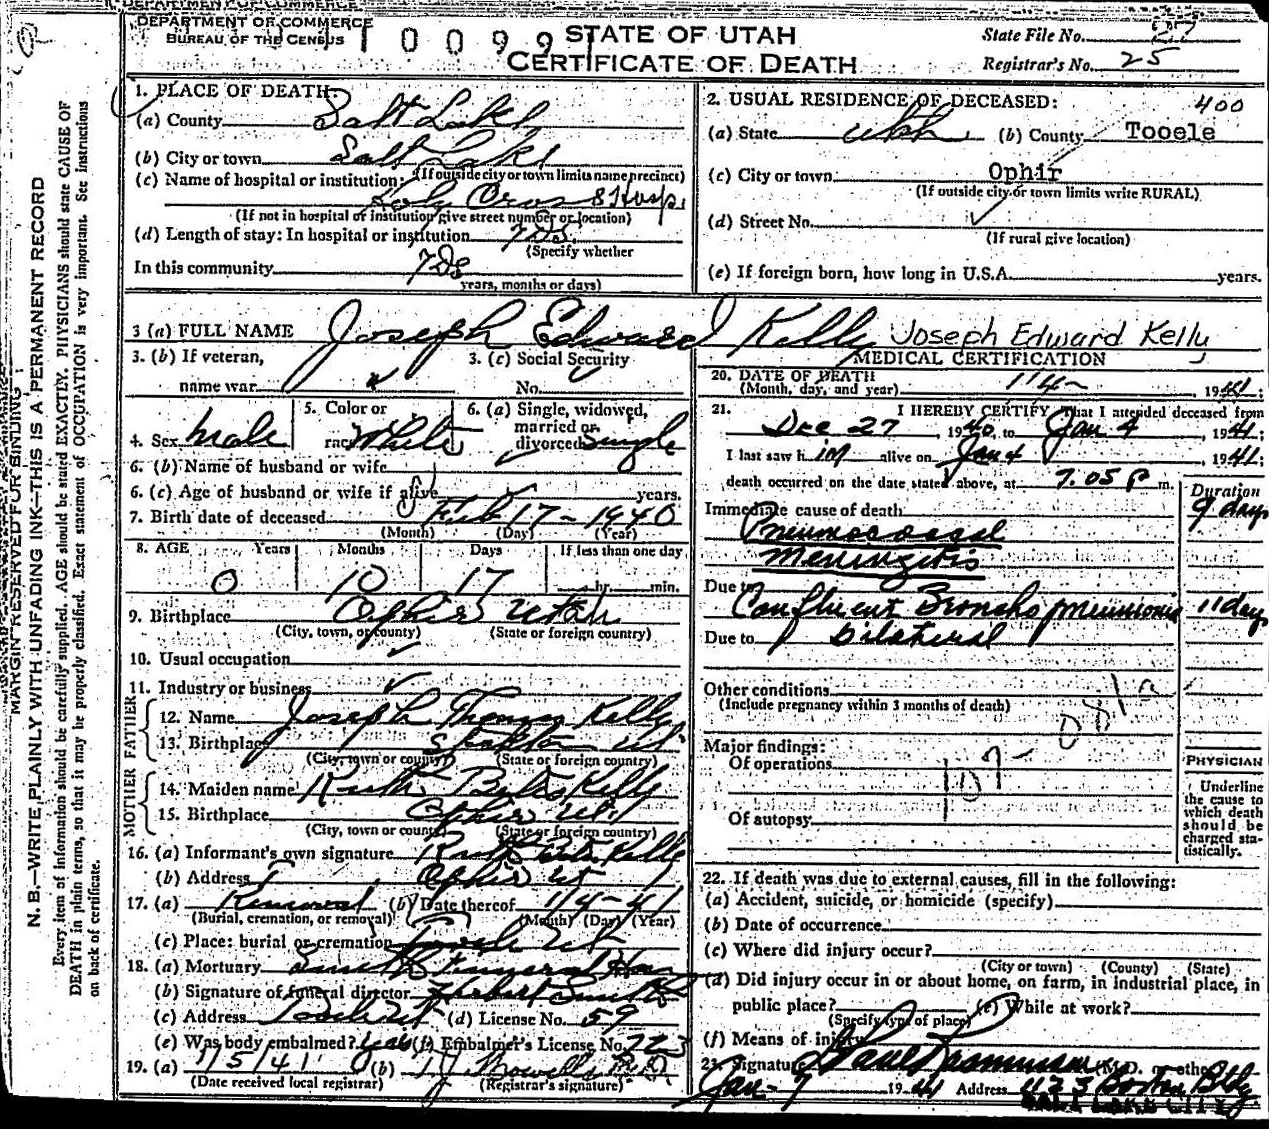 DEPARTMENT OF COMMERCE
BUREAU OF THE CENSUS
STATE OF UTAH
CERTIFICATE OF DEATH
State File No.
Registrar's No. 25
MARGIN RESERVED FOR BINDING
N. B.—WRITE PLAINLY WITH UNFADING INK—THIS IS A PERMANENT RECORD
Every item of information should be carefully supplied. AGE should be stated EXACTLY. PHYSICIANS should state CAUSE OF
DEATH in plain terms, so that it may be properly classified. Exact statement of OCCUPATION is very important. See instructions
on back of certificate.
1. PLACE OF DEATH
(a) County Salt Lake
(b) City or town Salt Lake
(If outside city or town limits name precinct)
(c) Name of hospital or institution:
Holy Cross Hosp.
(If not in hospital or institution give street number or location)
(d) Length of stay: In hospital or institution 7 Ds.
(Specify whether
In this community 7 Ds
years, months or days)
2. USUAL RESIDENCE OF DECEASED: 400
(a) State Utah (b) County Tooele
(c) City or town Ophir
(If outside city or town limits write RURAL)
(d) Street No.
(If rural give location)
(e) If foreign born, how long in U.S.A. years.
3 (a) FULL NAME Joseph Edward Kelly Joseph Edward Kelly
3. (b) If veteran,
name war
3. (c) Social Security
No.
4. Sex Male
5. Color or
race White
6. (a) Single, widowed,
married or
divorced Single
6. (b) Name of husband or wife
6. (c) Age of husband or wife if alive years.
7. Birth date of deceased Feb 17 - 1940
(Month) (Day) (Year)
8. AGE Years Months Days If less than one day
0 10 17 hr. min.
9. Birthplace Ophir Utah
(City, town, or county) (State or foreign country)
10. Usual occupation
11. Industry or business
FATHER
12. Name Joseph Thomas Kelly
13. Birthplace Stockton Ut
(City, town or county) (State or foreign country)
MOTHER
14. Maiden name Ruth Kelly
15. Birthplace Ophir Ut
(City, town or county) (State or foreign country)
16. (a) Informant's own signature Ruth Kelly
(b) Address Ophir Ut
17. (a) Removal (b) Date thereof 1/4-41
(Burial, cremation, or removal) (Month) (Day) (Year)
(c) Place: burial or cremation Tooele Ut
18. (a) Mortuary Smith Funeral Home
(b) Signature of funeral director Herbert Smith
(c) Address Tooele Ut (d) License No. 59
(e) Was body embalmed? Yes (f) Embalmer's License No. 223
19. (a) 1/5/41 (b)
(Date received local registrar) (Registrar's signature)
MEDICAL CERTIFICATION
20. DATE OF DEATH
(Month, day, and year) 1-4- 1941;
21. I HEREBY CERTIFY, That I attended deceased from
Dec 27, 1940, to Jan 4, 1941;
I last saw him alive on Jan 4, 1941;
death occurred on the date stated above, at 7.05 P m.
Duration
Immediate cause of death 9 days
Pneumococcal
Meningitis
Due to Confluent Bronchopneumonia 11 days
Due to bilateral
Other conditions
(Include pregnancy within 3 months of death)
Major findings:
Of operations
107-
Of autopsy
PHYSICIAN
Underline
the cause to
which death
should be
charged sta-
tistically.
22. If death was due to external causes, fill in the following:
(a) Accident, suicide, or homicide (specify)
(b) Date of occurrence
(c) Where did injury occur?
(City or town) (County) (State)
(d) Did injury occur in or about home, on farm, in industrial place, in
public place? (e) While at work?
(Specify type of place)
(f) Means of injury
23. Signature Rasmussen (M.D. or other)
Jan - 7 1941 Address 1123 Boston Bldg
SALT LAKE CITY